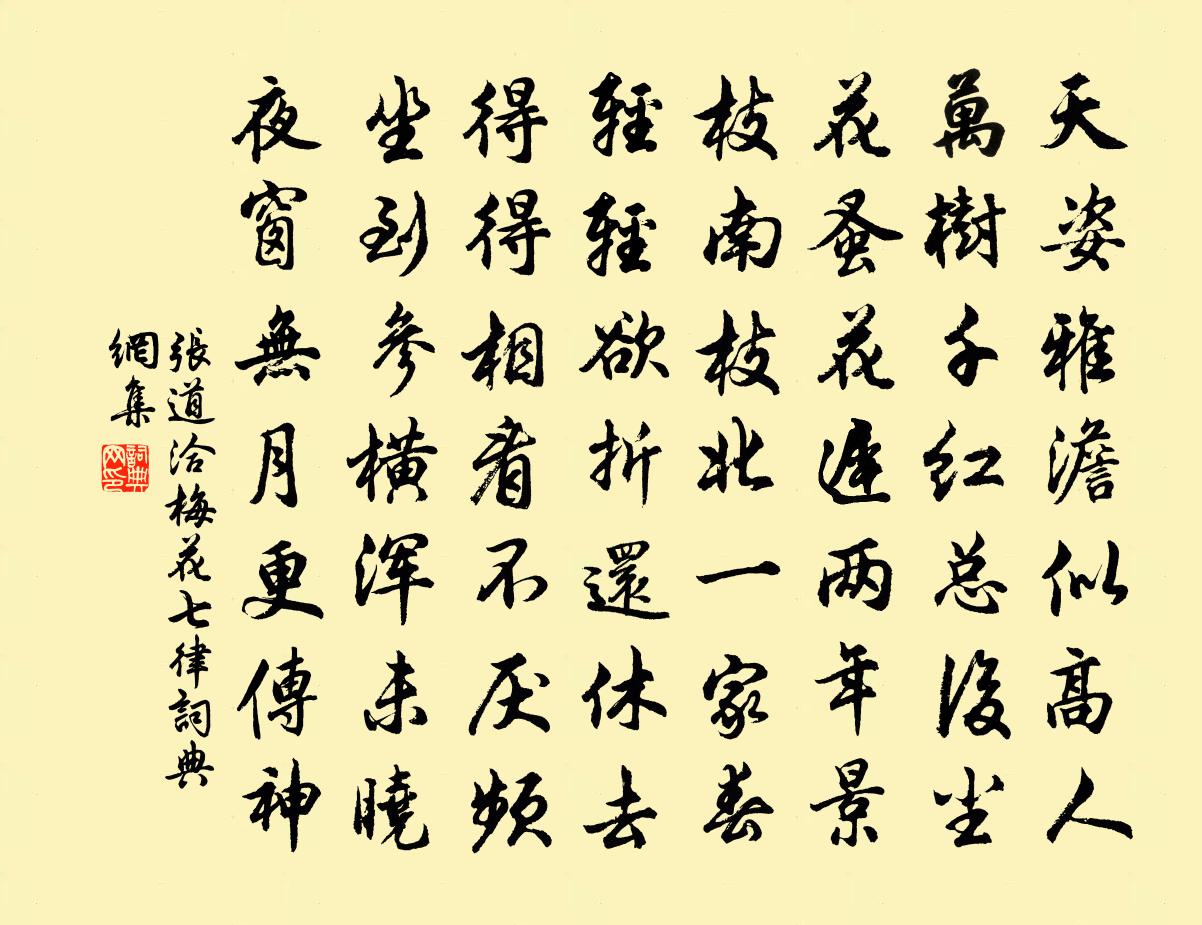 天姿雅澹似高人
萬樹千紅总後尘
花蚤花遲两年景
枝南枝北一家春
輕輕欲折還休去
得得相看不厌頻
坐到參橫浑未曉
夜窗無月更傳神
張道洽梅花七律詞典
網集
詞典
网印